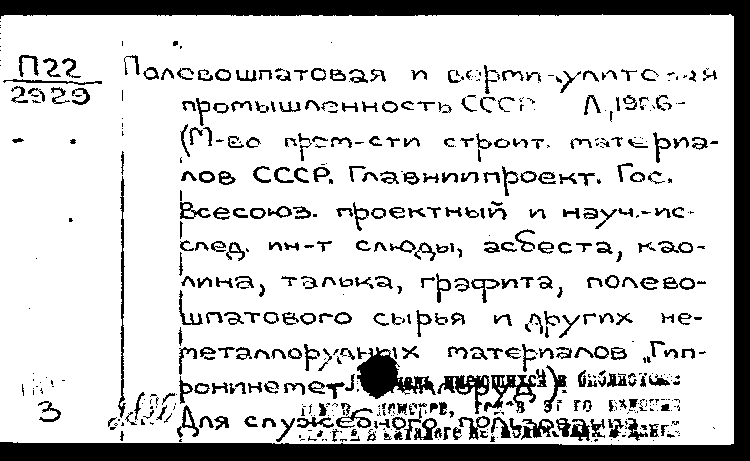 П22 Полевошпатовая и вермикулитовая
2929 промышленность СССР. Л., 1966-
(М-во пром-сти строит. материа-
лов СССР. Главнииппроект. Гос.
Всесоюз. проектный и науч.-ис-
след. ин-т слюды, асбеста, као-
лина, талька, графита, полево-
шпатового сырья и других не-
металлорудных материалов „Гип-
ронинеметаллоруд").
имеющихся в библиотеке
3 Для служебного пользования.
номеров,